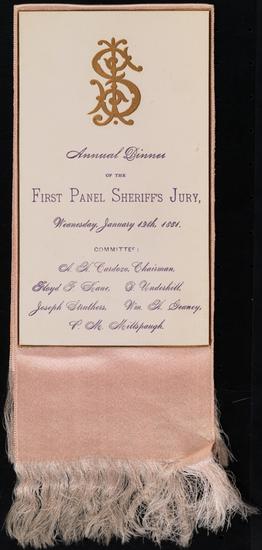 Annual Dinner
OF THE
FIRST PANEL SHERIFF'S JURY,
Wednesday, January 19th, 1881.
COMMITTEE:
A. N. Cardozo, Chairman,
Floyd F. Kane, S. Underhill,
Joseph Struthers, Wm. H. Geaney,
P. M. Millspaugh.